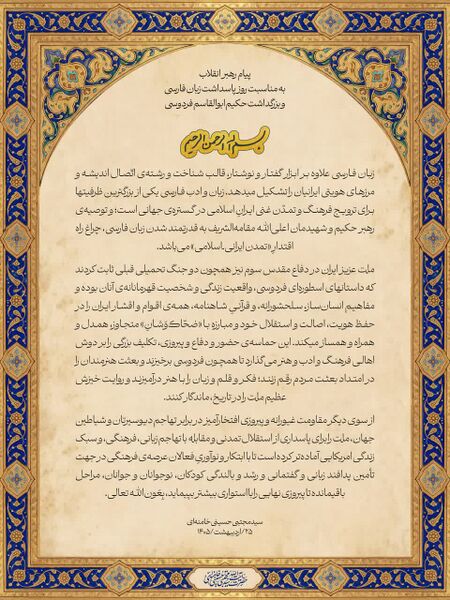 پیام رهبر انقلاب
به مناسبت روز پاسداشت زبان فارسی
و بزرگداشت حکیم ابوالقاسم فردوسی
بسم الله الرحمن الرحیم
زبان فارسی علاوه بر ابزار گفتار و نوشتار، قالب شناخت و رشته‌ی اتّصال اندیشه و
مرزهای هویتی ایرانیان را تشکیل میدهد. زبان و ادب فارسی یکی از بزرگترین ظرفیتها
برای ترویج فرهنگ و تمدّن غنی ایران اسلامی در گستره‌ی جهانی است؛ و توصیه‌ی
رهبر حکیم و شهیدمان اعلی‌الله مقامه‌الشریف به قدرتمند شدن زبان فارسی، چراغ راه
اقتدارِ «تمدن ایرانی‌ـ‌اسلامی» می‌باشد.
ملت عزیز ایران در دفاع مقدس سوم نیز همچون دو جنگ تحمیلی قبلی ثابت کردند
که داستانهای اسطوره‌ای فردوسی، واقعیت زندگی و شخصیت قهرمانانه‌ی آنان بوده و
مفاهیم انسان‌ساز، سلحشورانه، و قرآنیِ شاهنامه، همه‌ی اقوام و اقشار ایران را در
حفظ هویت، اصالت و استقلال خود و مبارزه با «ضحّاک‌وَشان» متجاوز، همدل و
همراه و همساز میکند. این حماسه‌ی حضور و دفاع و پیروزی، تکلیف بزرگی را بر دوش
اهالی فرهنگ و ادب و هنر می‌گذارد تا همچون فردوسی برخیزند و بعثت هنرمندان را
در امتداد بعثت مردم رقم زنند؛ فکر و قلم و زبان را با هنر درآمیزند و روایت خیزش
عظیم ملت را در تاریخ، ماندگار کنند.
از سوی دیگر مقاومت غیورانه و پیروزی افتخارآمیز در برابر تهاجم دیوسیرتان و شیاطین
جهان، ملت را برای پاسداری از استقلال تمدنی و مقابله با تهاجم زبانی، فرهنگی، و سبک
زندگی آمریکایی آماده‌تر کرده است تا با ابتکار و نوآوریِ فعالان عرصه‌ی فرهنگی در جهت
تأمین پدافند زبانی و گفتمانی و رشد و بالندگی کودکان، نوجوانان و جوانان، مراحل
باقیمانده تا پیروزی نهایی را با استواری بیشتر بپیماید، بِعَون‌الله تعالی.
سیدمجتبی حسینی خامنه‌ای
۲۵/اردیبهشت/۱۴۰۵